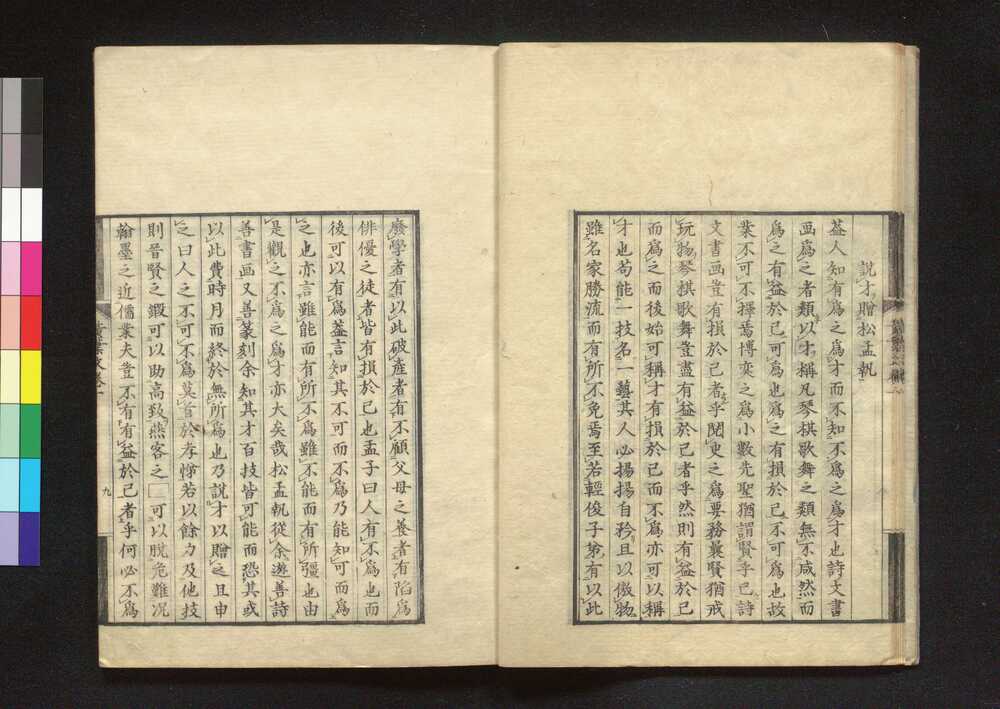 說才贈松孟執
蓋人知有爲之爲才而不知不爲之爲才也詩文書
画爲之者類以才稱凡琴棋歌舞之類無不咸然而
爲之有益於己可爲也爲之有損於己不可爲也故
業不可不擇焉博奕之爲小數先聖猶謂賢乎已詩
文書画豈有損於己者乎閱史之爲要務曩賢猶戒
玩物琴棋歌舞豈盡有益於己者乎然則有益於己
而爲之而後始可稱才有損於己而不爲亦可以稱
才也苟能一技名一藝其人必揚揚自矜且以傲物
雖名家勝流而有所不免焉至若輕俊子弟有以此
廢學者有以此破產者有不顧父母之養者有陷爲
俳優之徒者皆有損於己也孟子曰人有不爲也而
後可以有爲蓋言知其不可而不爲乃能知可而爲
之也亦言雖能而有所不爲雖不能而有所彊也由
是觀之不爲之爲才亦大矣哉松孟執從余遊善詩
善書画又善篆刻余知其才百技皆可能而恐其或
以此費時月而終於無所爲也乃說才以贈之且申
之曰人之不可不爲莫首於孝悌若以餘力及他技
則晉賢之鍜可以助高致燕客之□可以脫危難况
翰墨之近儒業夫豈不有益於己者乎何必不爲
九